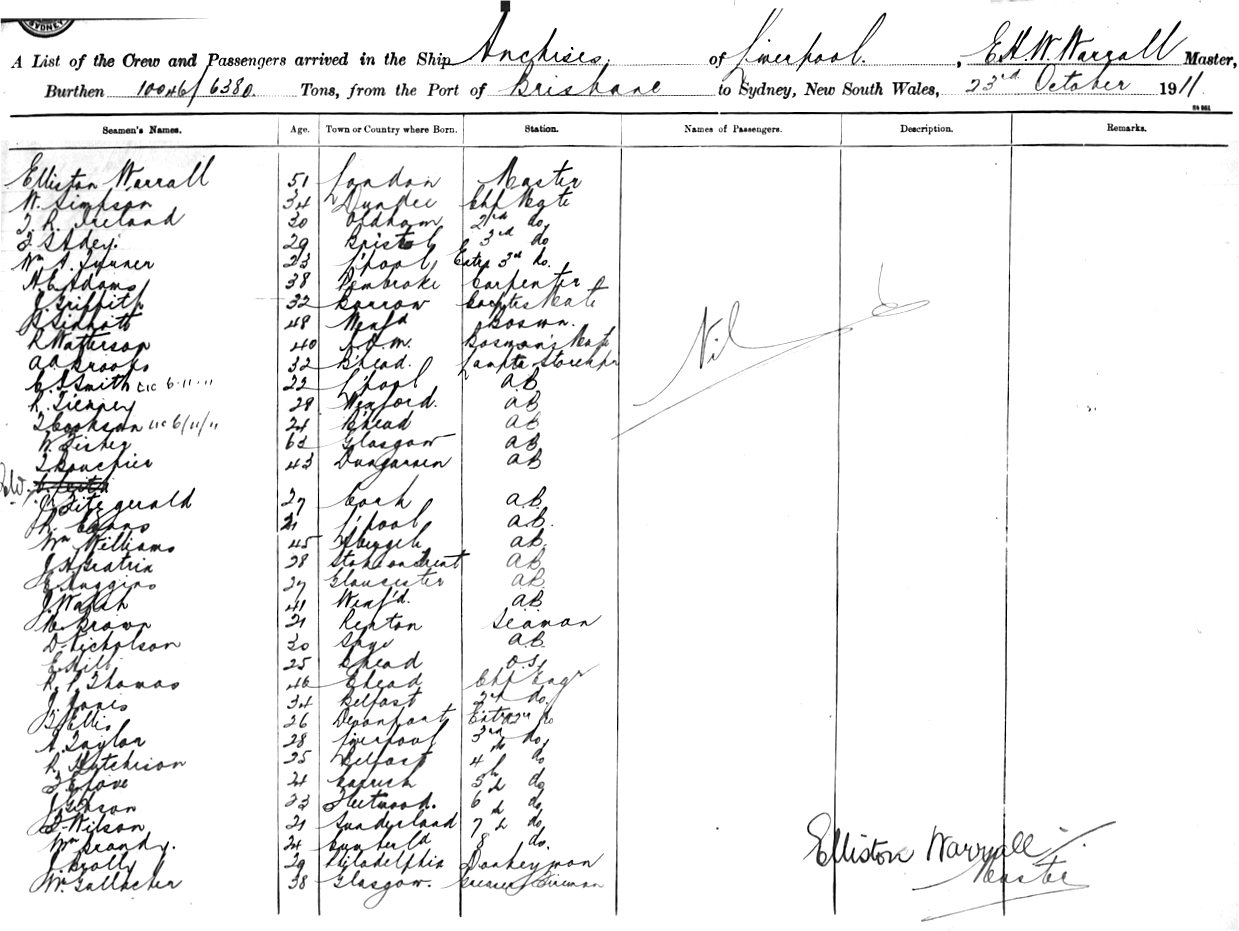 SYDNEY
A List of the Crew and Passengers arrived in the Ship Anchises, of Liverpool. , E.H.W. Warrall Master,
Burthen 10046/6380. Tons, from the Port of Brisbane to Sydney, New South Wales, 23rd October 1911
Seamen's Names. Age. Town or Country where Born. Station. Names of Passengers. Description. Remarks.
Elliston Warrall 51 London Master
W. Simpson 34 Dundee Chf Mate
R. Ireland 30 Oldham 2nd do
29 Bristol 3rd do
Wm A. Turner 23 L'pool Extra 3rd do.
H. E. Adams 38 Pembroke Carpenter
J. Griffith 32 Barrow Mate
48 Wexf'd Boswn.
R. Watterson 40 I.O.M. Boswn's Mate
A.A. Brooks 32 B'head. Lamps Storekpr
Smith 6.11.11 22 L'pool AB
R. Tierney 29 Wexford. AB
Cookson 6/11/11 24 B'head AB
W. Fisher Glasgow AB
Bouchier 43 Dungarven AB
Fitzgerald 27 Cork AB
R. Evans 21 L'pool AB.
Wm Williams 45 Abergele AB.
28 Stoke on Trent AB
E. Huggins 27 Gloucester AB
J. Walsh 41 Wexf'd. AB
Brown 21 Renton Seaman
D. Nicholson 30 Skye AB.
E. Hill 25 B'head O.S.
R. P. Thomas 46 B'head Chf Engr
J. Jones 34 Belfast 2nd do.
Ellis 26 Devonport Extra 2nd do
A. Taylor 28 Liverpool 3rd do
R. Hutchison 25 Belfast 4th do
Love 24 5th do
J. Gibson 23 Fleetwood. 6th do
Wilson 21 Sunderland 7th do
Wm Brandy. 24 Sunderld 8th do.
J. Brolly 29 Philadelphia Donkeyman
Wm. Gallacher 38 Glasgow. Greaser/Fireman
Nil
Elliston Warrall
Master